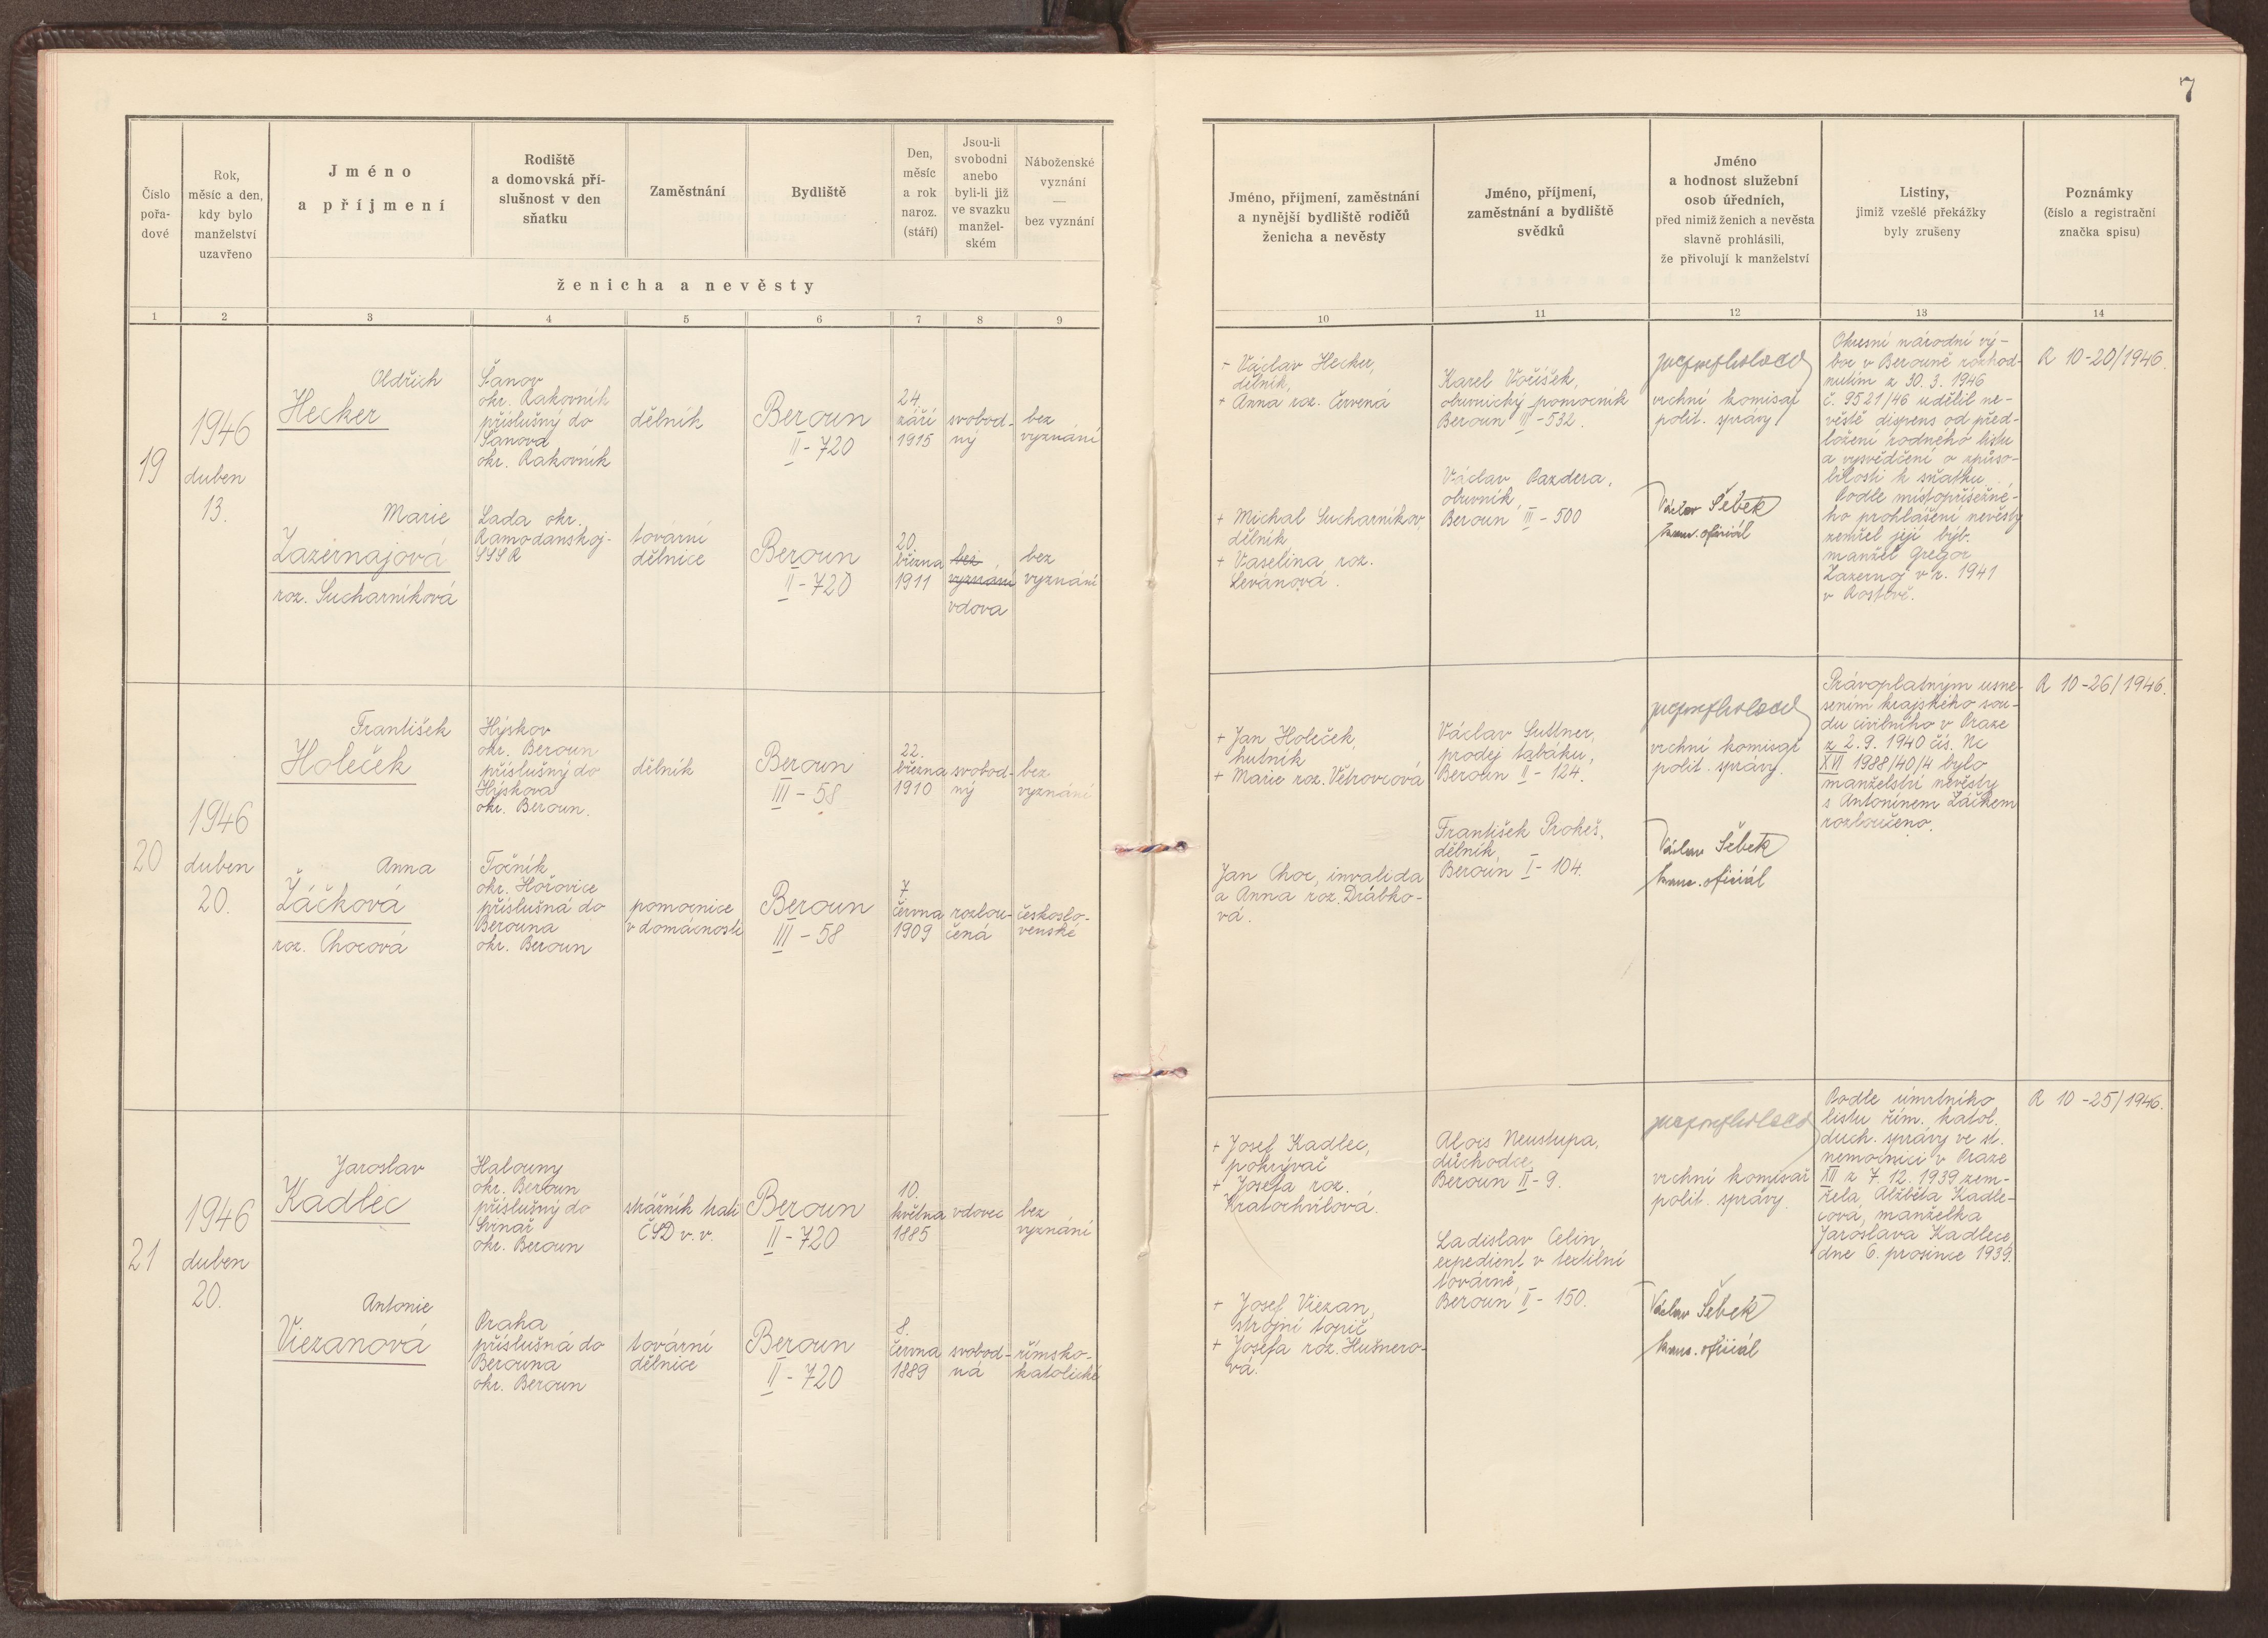 7
Číslo
pořa-
dové
Rok,
měsíc a den,
kdy bylo
manželství
uzavřeno
Jméno
a příjmení
Rodiště
a domovská pří-
slušnost v den
sňatku
Zaměstnání
Bydliště
Den,
měsíc
a rok
naroz.
(stáří)
Jsou-li
svobodni
anebo
byli-li již
ve svazku
manžel-
ském
Náboženské
vyznání
—
bez vyznání
ženicha a nevěsty
Jméno, příjmení, zaměstnání
a nynější bydliště rodičů
ženicha a nevěsty
Jméno, příjmení,
zaměstnání a bydliště
svědků
Jméno
a hodnost služební
osob úředních,
před nimiž ženich a nevěsta
slavně prohlásili,
že přivolují k manželství
Listiny,
jimiž vzešlé překážky
byly zrušeny
Poznámky
(číslo a registrační
značka spisu)
1 2 3 4 5 6 7 8 9 10 11 12 13 14
19
1946
duben
13.
Oldřich
Hecker
Šanov
okr. Rakovník
příslušný do
Šanova
okr. Rakovník
dělník
Beroun
II - 720
24.
září
1915
svobod-
ný
bez
vyznání
Marie
Zazernajová
roz. Sucharníková
Lada okr.
Ramodanskoj-
SSSR
tovární
dělnice
Beroun
II - 720
20.
března
1911
bez
vyznání
vdova
bez
vyznání
+ Václav Hecker,
dělník,
+ Anna roz. Červená
+ Michal Sucharnikov,
dělník
+ Vaselina roz.
Levanová.
Karel Voříšek,
obuvnický pomocník
Beroun III - 532.
Václav Pazdera,
obuvník,
Beroun III - 500
vrchní komisař
polit. správy
Václav Šebek
kanc. oficiál
Okresní národní vý-
bor v Berouně rozhod-
nutím z 30. 3. 1946
č. 9521/46 udělil ne-
věstě dispens od před-
ložení rodného listu
a vysvědčení o způso-
bilosti k sňatku.
Podle místopřísežné-
ho prohlášení nevěsty
zemřel její býv.
manžel Gregor
Zazernoj v r. 1941
v Rostově.
R 10-20/1946.
20
1946
duben
20.
František
Holeček
Hýskov
okr. Beroun
příslušný do
Hýskova
okr. Beroun.
dělník
Beroun
III - 58
22.
března
1910
svobod-
ný
bez
vyznání
Anna
Žáčková
roz. Chocová
Točník
okr. Hořovice
příslušná do
Berouna
okr. Beroun
pomocnice
v domácnosti
Beroun
III - 58
7
června
1909
rozlou-
čená
českoslo-
venské
+ Jan Holeček,
hutník
+ Marie roz. Větrovcová
Jan Choc, invalida
a Anna roz. Drábko-
vá.
Václav Suttner,
prodej tabáku,
Beroun II - 124.
František Prokeš,
dělník,
Beroun I - 104.
vrchní komisař
polit. správy.
Václav Šebek
kanc. oficiál
Právoplatným usne-
sením krajského sou-
du civilního v Praze
z 2. 9. 1940 čís. Nc
XVI 1988/40/4 bylo
manželství nevěsty
s Antonínem Žáčkem
rozloučeno.
R 10-26/1946.
21
1946
duben
20.
Jaroslav
Kadlec
Halouny
okr. Beroun
příslušný do
Svinař
okr. Beroun
strážník trati
ČSD v. v.
Beroun
II - 720
10.
května
1885
vdovec
bez
vyznání
Antonie
Viezanová
Praha
příslušná do
Berouna
okr. Beroun
tovární
dělnice
Beroun
II - 720
8.
června
1889
svobod-
ná
římsko-
katolické
+ Josef Kadlec,
pokrývač
+ Josefa roz.
Kratochvílová.
+ Josef Viezan,
strojní topič
+ Josefa roz. Hušnero-
vá.
Alois Neustupa,
důchodce,
Beroun II - 9.
Ladislav Celin,
expedient v textilní
továrně,
Beroun II - 150.
vrchní komisař
polit. správy.
Václav Šebek
kanc. oficiál
Podle úmrtního
listu řím. katol.
duch. správy ve st.
nemocnici v Praze
XII z 7. 12. 1939 zem-
řela Alžběta Kadle-
cová, manželka
Jaroslava Kadlece,
dne 6. prosince 1939.
R 10-25/1946.